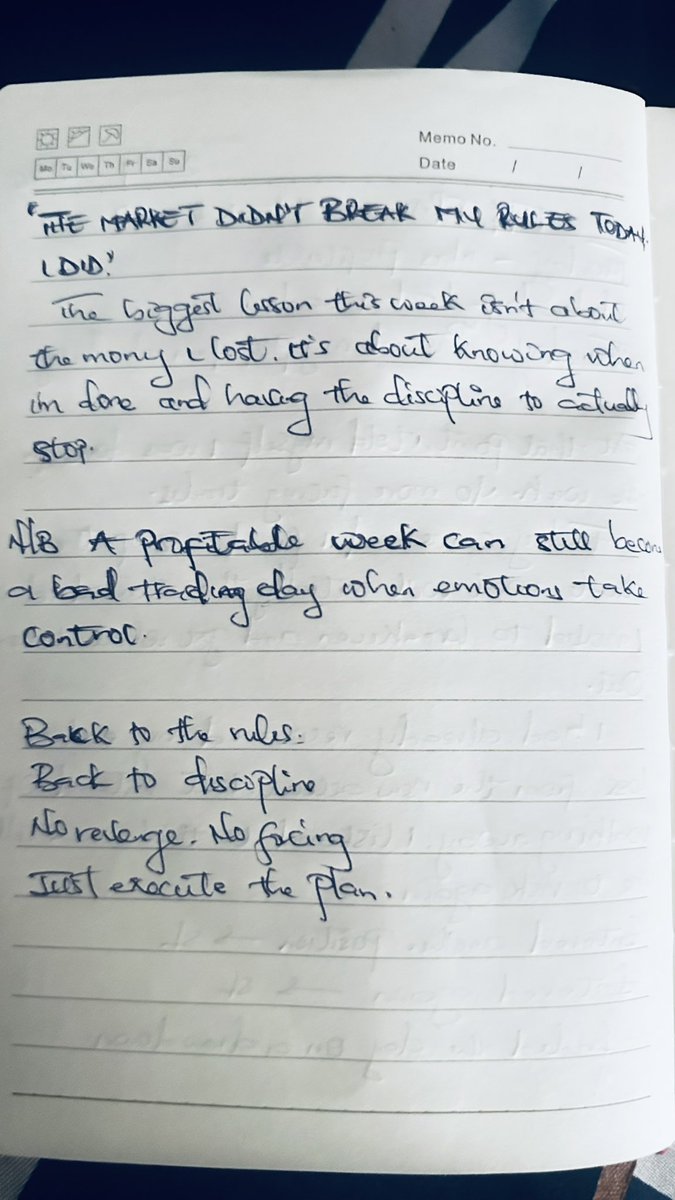 Memo No.
Mo Tu We Th Fr Sa Su
Date / /
"THE MARKET DIDN'T BREAK MY RULES TODAY.
I DID."
The biggest lesson this week isn't about
the mony I lost. It's about knowing when
im done and having the discipline to actually
stop.
N/B A profitable week can still become
a bad trading day when emotions take
control.
Back to the rules.
Back to discipline
No revenge. No forcing
Just execute the plan.